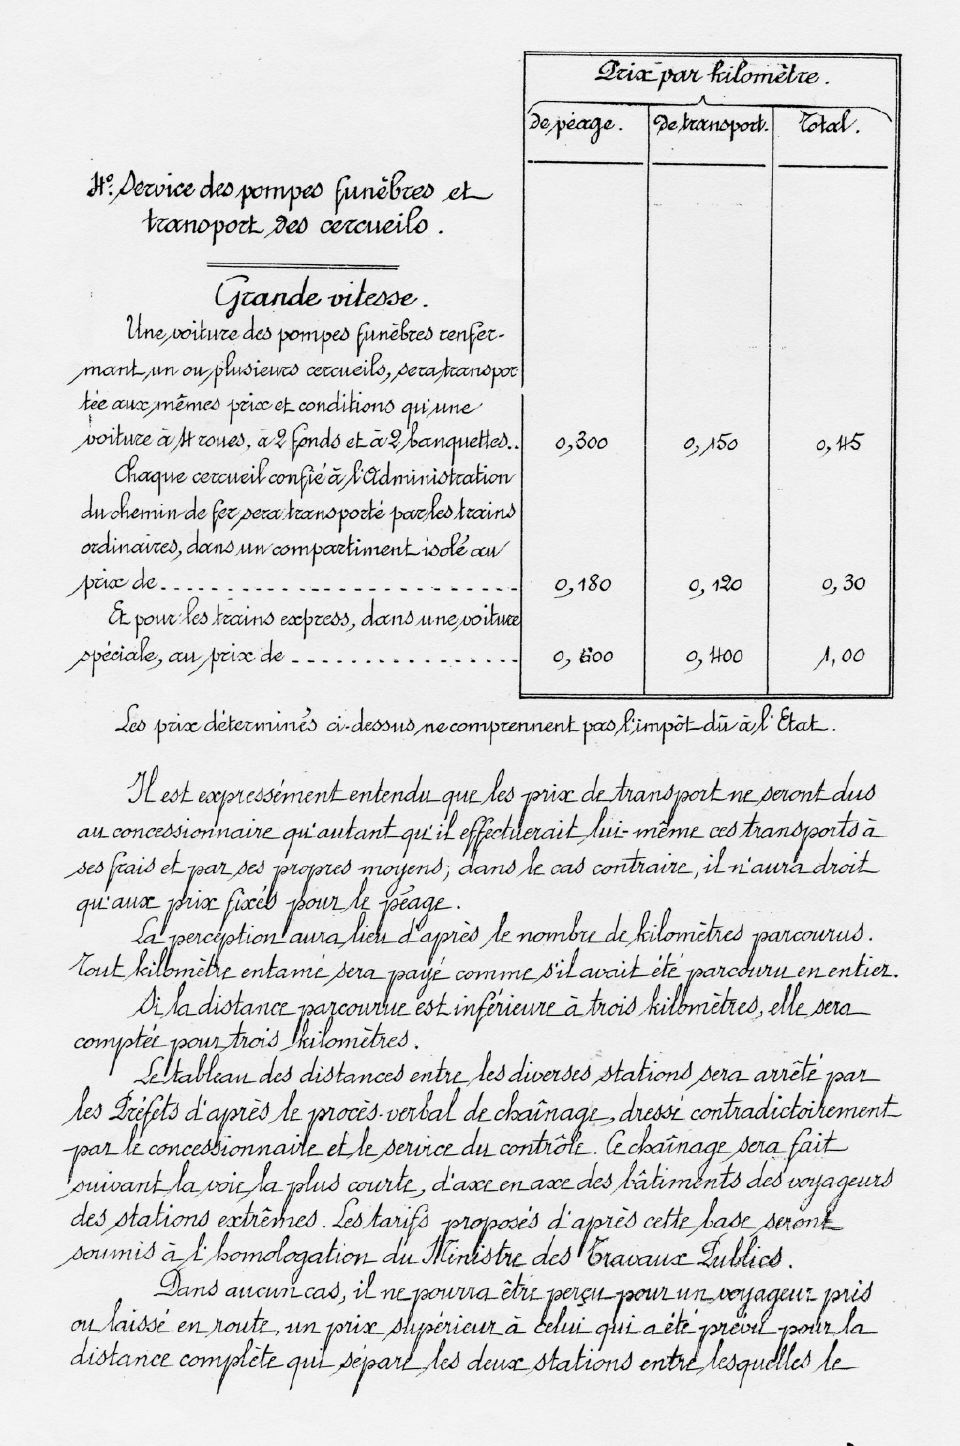 Prix par kilomètre.
de péage. De transport. Total.
4°. Service des pompes funèbres et
transport des cercueils.
Grande vitesse.
Une voiture des pompes funèbres renfer-
mant un ou plusieurs cercueils, sera transpor
tée aux mêmes prix et conditions qu'une
voiture à 4 roues, à 2 fonds et à 2 banquettes.. 0,300 0,150 0,45
Chaque cercueil confié à l'Administration
du chemin de fer sera transporté par les trains
ordinaires, dans un compartiment isolé au
prix de .......................... 0,180 0,120 0,30
Et pour les trains express, dans une voiture
spéciale, au prix de ................ 0,600 0,400 1,00
Les prix déterminés ci-dessus, ne comprennent pas l'impôt dû à l'Etat.
Il est expressément entendu que les prix de transport ne seront dus
au concessionnaire qu'autant qu'il effectuerait lui-même ces transports à
ses frais et par ses propres moyens; dans le cas contraire, il n'aura droit
qu'aux prix fixés pour le péage.
La perception aura lieu d'après le nombre de kilomètres parcourus.
Tout kilomètre entamé sera payé comme s'il avait été parcouru en entier.
Si la distance parcourue est inférieure à trois kilomètres, elle sera
comptée pour trois kilomètres.
Le tableau des distances entre les diverses stations sera arrêté par
les Préfets d'après le procès-verbal de chaînage, dressé contradictoirement
par le concessionnaire et le service du contrôle. Ce chaînage sera fait
suivant la voie la plus courte, d'axe en axe des bâtiments des voyageurs
des stations extrêmes. Les tarifs proposés d'après cette base seront
soumis à l'homologation du Ministre des Travaux Publics.
Dans aucun cas, il ne pourra être perçu pour un voyageur pris
ou laissé en route, un prix supérieur à celui qui a été prévu pour la
distance complète qui sépare les deux stations entre lesquelles le